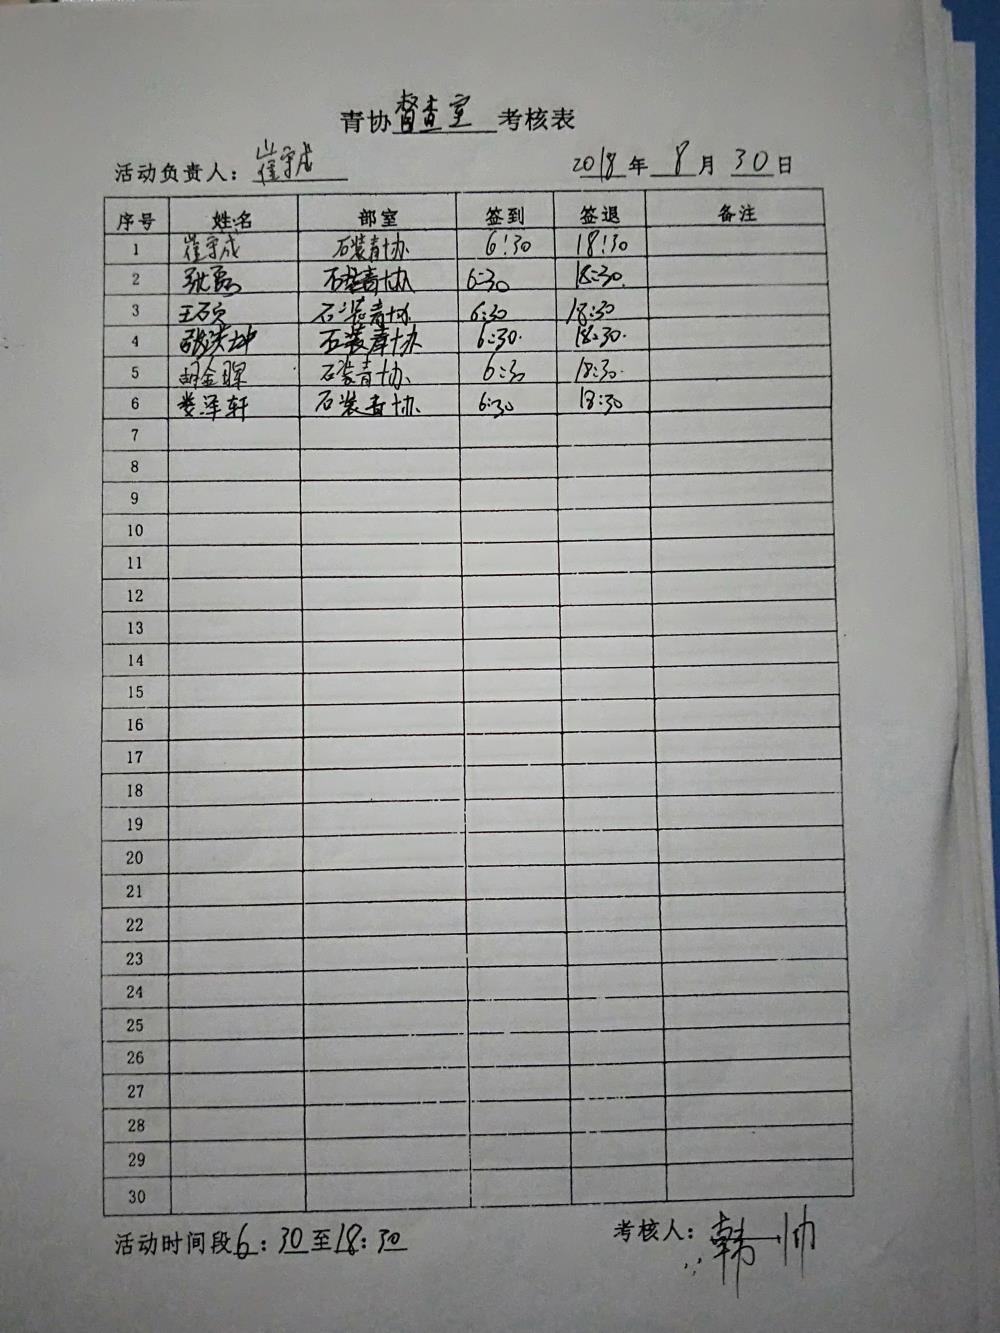 青协督查室考核表
活动负责人：崔宇成 2018年8月30日
序号 姓名 部室 签到 签退 备注
1 崔宇成 石装青协 6:30 18:30
2 张磊 石装青协 6:30 18:30
3 石装青协 6:30 18:30
4 石装青协 6:30 18:30
5 胡金晖 石装青协 6:30 18:30
6 娄泽轩 石装青协 6:30 18:30
7
8
9
10
11
12
13
14
15
16
17
18
19
20
21
22
23
24
25
26
27
28
29
30
活动时间段6:30至18:30 考核人：韩帅